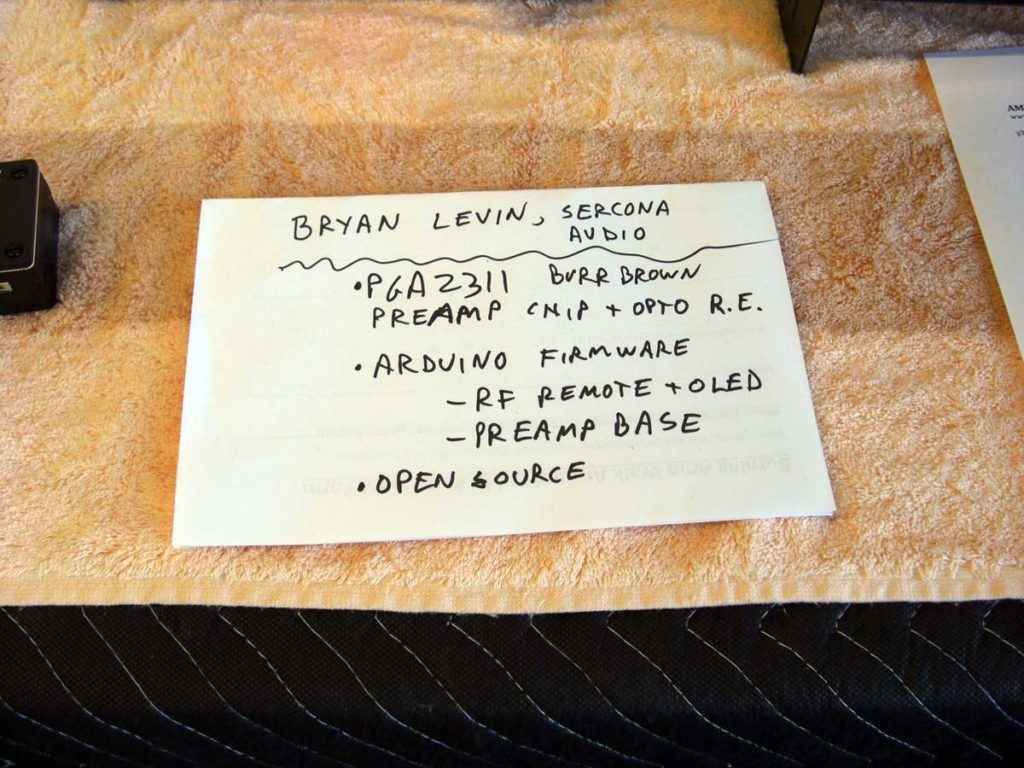 BRYAN LEVIN, SERCONA
AUDIO
• PGA2311 BURR BROWN
PREAMP CHIP + OPTO R.E.
• ARDUINO FIRMWARE
- RF REMOTE + OLED
- PREAMP BASE
• OPEN SOURCE
AM